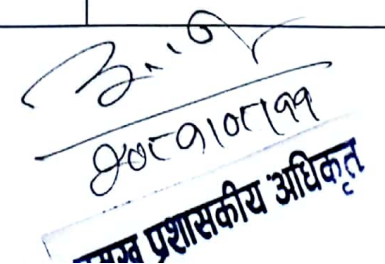 २०८१।०८।११
प्रमुख प्रशासकीय अधिकृत